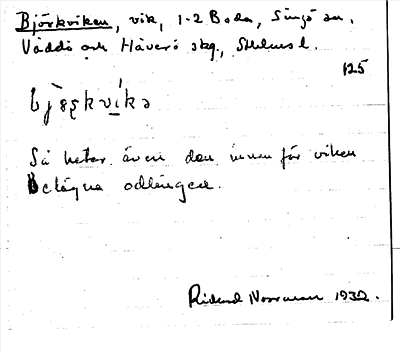 Björkviken, vik, 1-2 Boda, Singö sn,
Väddö och Häverö skg., Sthlms l.
125
bjœ̀rkvíka
Så heter även den innan för viken
belägna odlingen.
Rickard Norrman 1932.